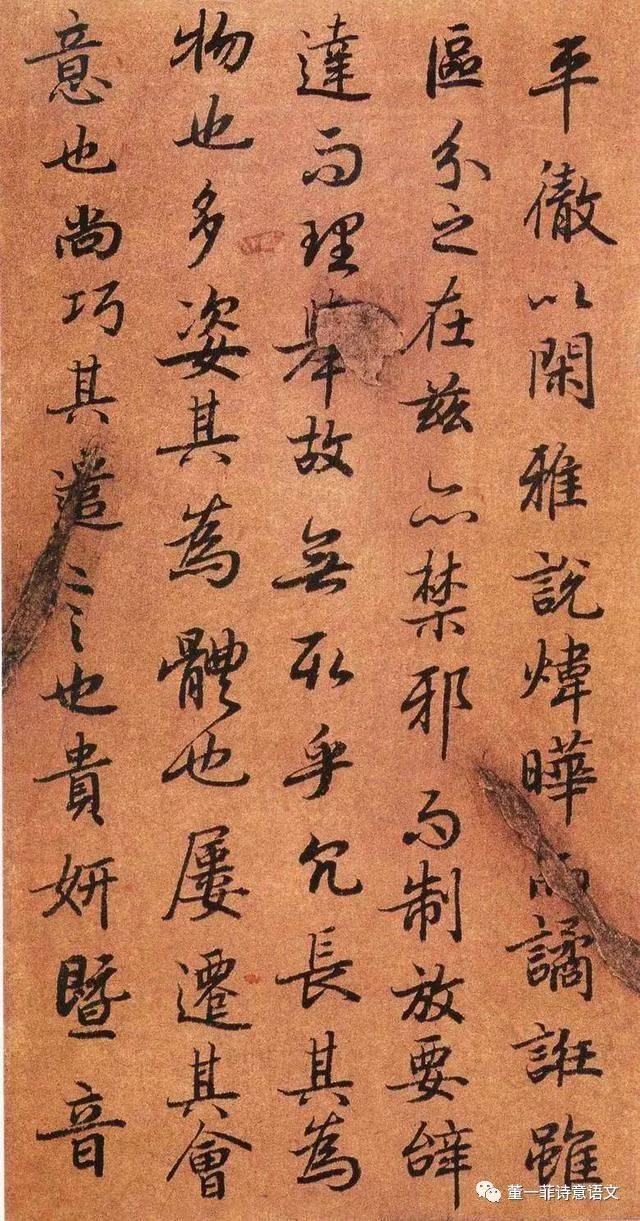 平徹以閑雅說煒曄而譎誑雖
區分之在茲亦禁邪而制放要辭
達而理舉故無取乎冗長其為
物也多姿其為體也屢遷其會
意也尚巧其遣言也貴妍暨音
董一菲诗意语文